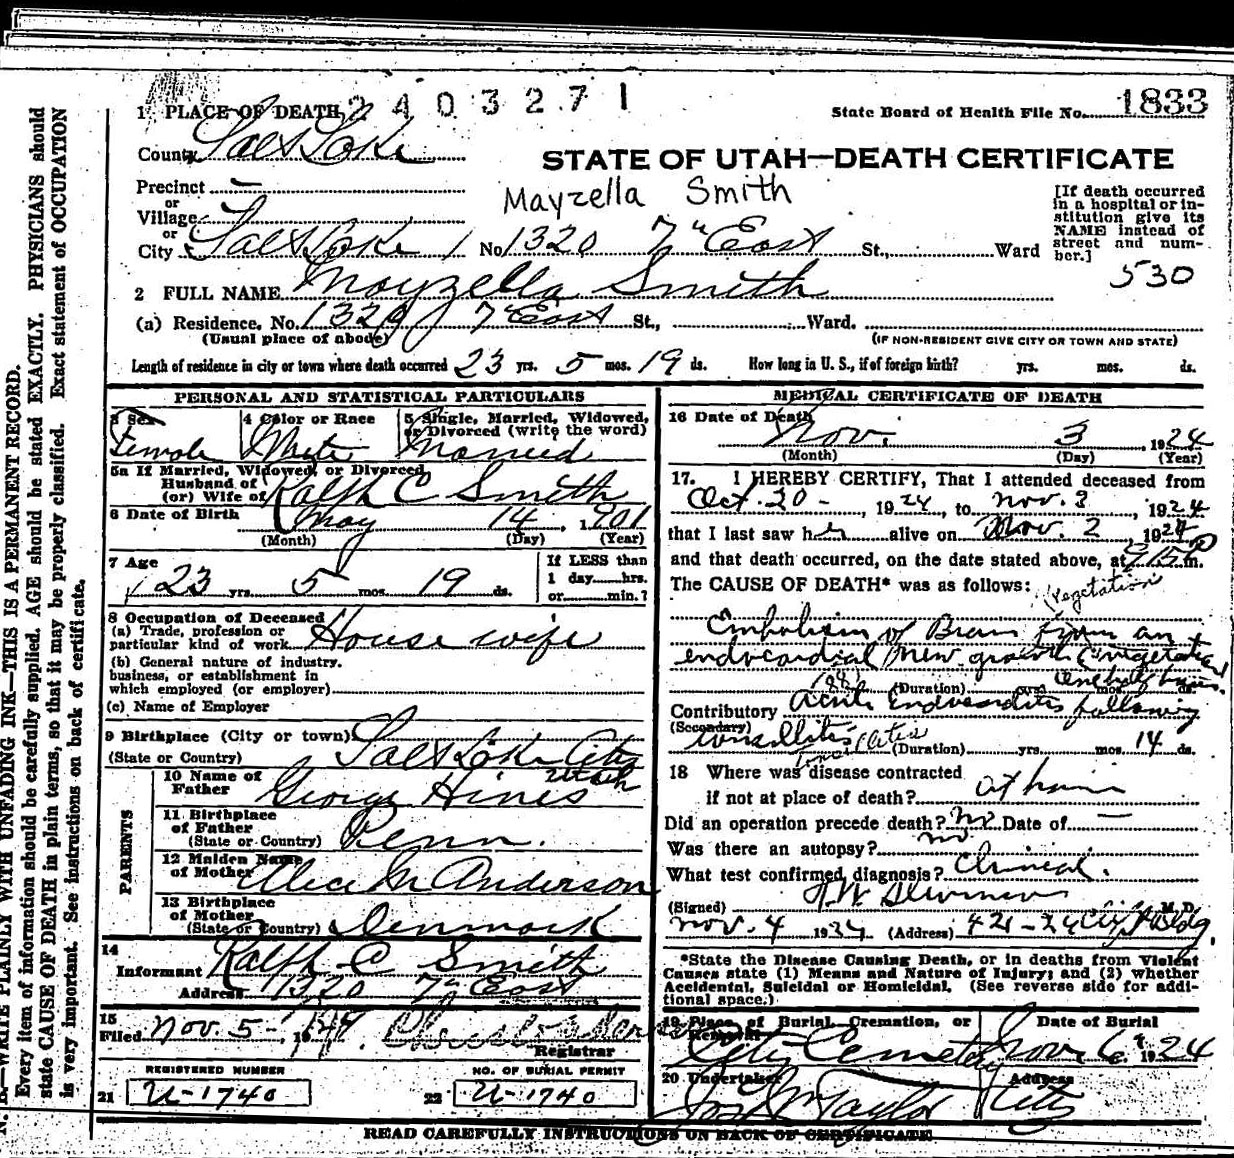 2403271
1 PLACE OF DEATH
State Board of Health File No. 1833
County Salt Lake
STATE OF UTAH—DEATH CERTIFICATE
Precinct —
Mayzella Smith
or
Village
or
City Salt Lake No. 1320 7th East St., Ward
[If death occurred
in a hospital or in-
stitution give its
NAME instead of
street and num-
ber.]
530
2 FULL NAME Mayzella Smith
(a) Residence. No. 1320 7th East St., Ward.
(Usual place of abode) (IF NON-RESIDENT GIVE CITY OR TOWN AND STATE)
Length of residence in city or town where death occurred 23 yrs. 5 mos. 19 ds. How long in U. S., if of foreign birth? yrs. mos. ds.
PERSONAL AND STATISTICAL PARTICULARS
3 Sex 4 Color or Race 5 Single, Married, Widowed,
or Divorced (write the word)
Female White Married
5a If Married, Widowed, or Divorced
Husband of
(or) Wife of Ralph C Smith
6 Date of Birth May 14, 1901
(Month) (Day) (Year)
7 Age If LESS than
1 day......hrs.
or......min.?
23 yrs. 5 mos. 19 ds.
8 Occupation of Deceased
(a) Trade, profession or
particular kind of work House wife
(b) General nature of industry.
business, or establishment in
which employed (or employer)
(c) Name of Employer
9 Birthplace (City or town) Salt Lake City
(State or Country) Utah
PARENTS
10 Name of
Father George Hines
11 Birthplace
of Father
(State or Country) Penn.
12 Maiden Name
of Mother Alice M Anderson
13 Birthplace
of Mother
(State or Country) Denmark
14
Informant Ralph C Smith
Address 1320 7th East
15
Filed Nov 5-
Registrar
REGISTERED NUMBER NO. OF BURIAL PERMIT
21 U-1740 22 U-1740
MEDICAL CERTIFICATE OF DEATH
16 Date of Death
Nov. 3, 1924
(Month) (Day) (Year)
17. I HEREBY CERTIFY, That I attended deceased from
Oct. 20 -, 1924, to Nov. 3, 1924
that I last saw her alive on Nov. 2, 1924
and that death occurred, on the date stated above, at 9:15 P m.
The CAUSE OF DEATH* was as follows:
vegetation
Embolism of Brain from an
endocardial new growth (vegetation)
(Duration) yrs. mos. ds.
Contributory Acute Endocarditis following
(Secondary) tonsillitis
Tonsillitis (Duration) yrs. mos. 14 ds.
18 Where was disease contracted
if not at place of death? at home
Did an operation precede death? no Date of —
Was there an autopsy? no
What test confirmed diagnosis? Clinical.
(Signed) M. D.
Nov. 4 1924 (Address) 421-24 Clift Bldg.
*State the Disease Causing Death, or in deaths from Violent
Causes state (1) Means and Nature of Injury; and (2) whether
Accidental, Suicidal or Homicidal. (See reverse side for addi-
tional space.)
19 Place of Burial, Cremation, or
Removal
Date of Burial
City Cemetery Nov 6th 1924
20 Undertaker Address
Taylor City
READ CAREFULLY INSTRUCTIONS ON BACK OF CERTIFICATE
N. B.—WRITE PLAINLY WITH UNFADING INK—THIS IS A PERMANENT RECORD.
Every item of information should be carefully supplied. AGE should be stated EXACTLY. PHYSICIANS should
state CAUSE OF DEATH in plain terms, so that it may be properly classified. Exact statement of OCCUPATION
is very important. See instructions on back of certificate.